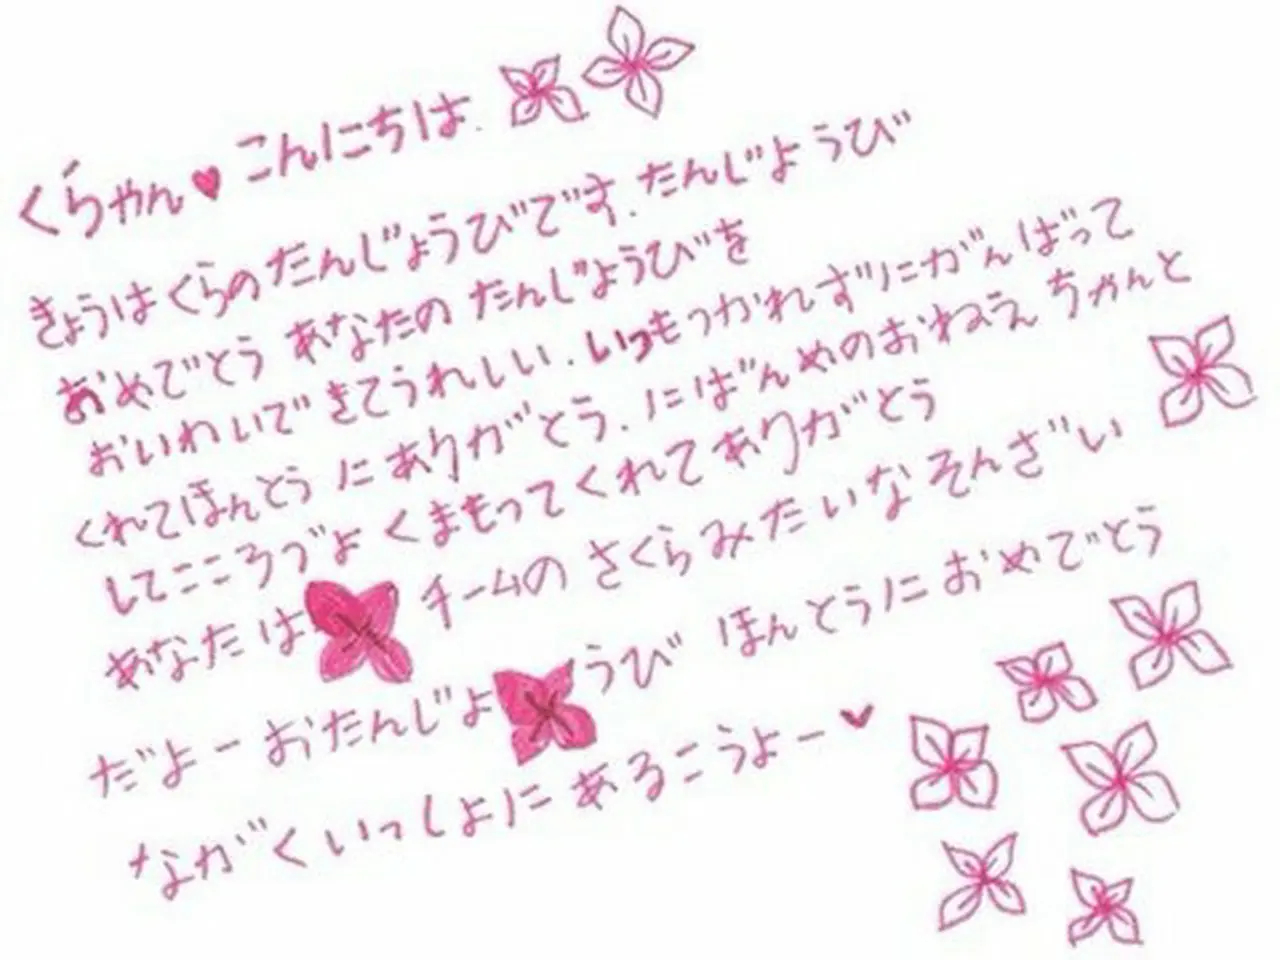 くらやん♥こんにちは.
きょうはくらのたんじょうびです.たんじようび
おめでとう あなたの たんじょうびを
おいわいできてうれしい.いつもつかれずににがんばって
くれてほんとうにありがとう.にばんめのおねえちゃんと
してこころづよくまもってくれてありがとう
あなたは チームの さくらみたいなそんざい
だよーおたんじようび ほんとうにおめでとう
ながくいっしよに あるこうよー♥